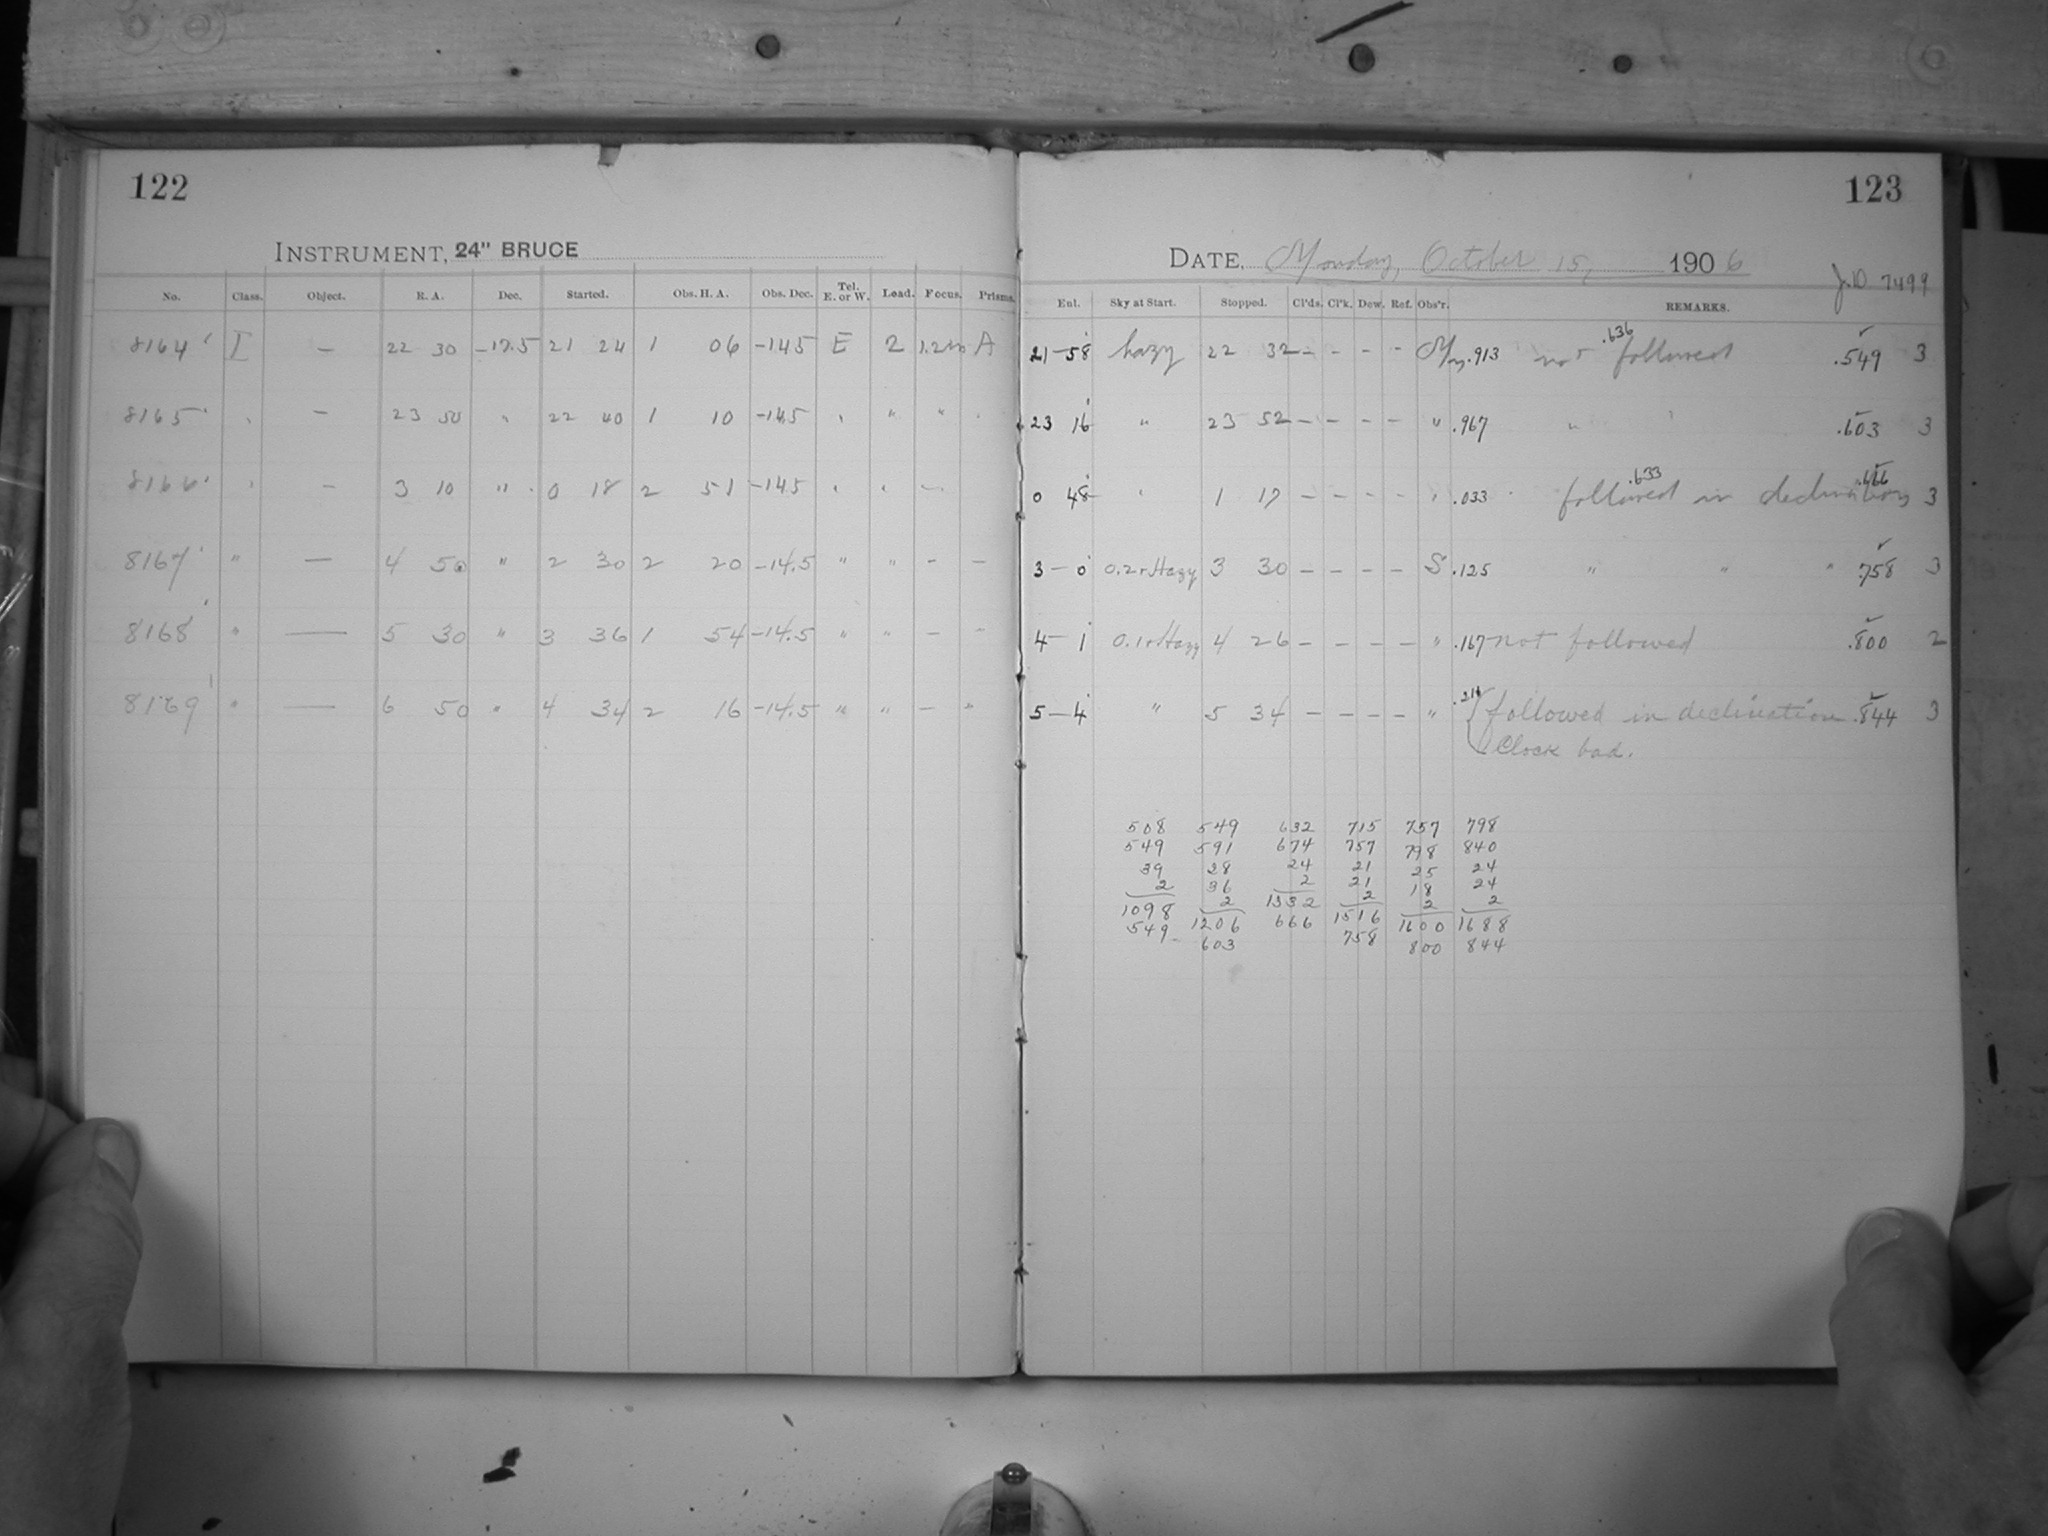 122
INSTRUMENT, 24" BRUCE
No. Class. Object. R. A. Dec. Started. Obs. H. A. Obs. Dec. Tel. E. or W. Lead. Focus. Prisms.
8164 I — 22 30 -17.5 21 24 1 06 -14.5 E 2 A
8165 — 23 50 " 22 40 1 10 -14.5 " "
8166 — 3 10 " 0 18 2 51 -14.5
8167 " — 4 50 " 2 30 2 20 -14.5 " " – –
8168 " — 5 30 " 3 36 1 54 -14.5 " " – "
8169 " — 6 50 " 4 34 2 16 -14.5 " " – "
123
DATE, Monday, October 15, 1906
J.D 7499
Enl. Sky at Start. Stopped. Cl'ds. Cl'k. Dew. Ref. Obs'r. REMARKS.
21–58 hazy 22 32 – – – – .913 not followed .636 .549 3
23 16 " 23 52 – – – – " .967 " " .603 3
0 48 " 1 17 – – – – " .033 followed in declination .633 .666 3
3–0 0.2 r Hazy 3 30 – – – – S .125 " " " .758 3
4–1 0.1 r Hazy 4 26 – – – – " .167 not followed .800 2
5–4 " 5 34 – – – – " .211 followed in declination .844 3
Clock bad.
508 549 632 715 757 798
549 591 674 757 798 840
39 28 24 21 25 24
2 36 2 21 18 24
1098 2 1332 2 2 2
549 1206 666 1516 1600 1688
603 758 800 844